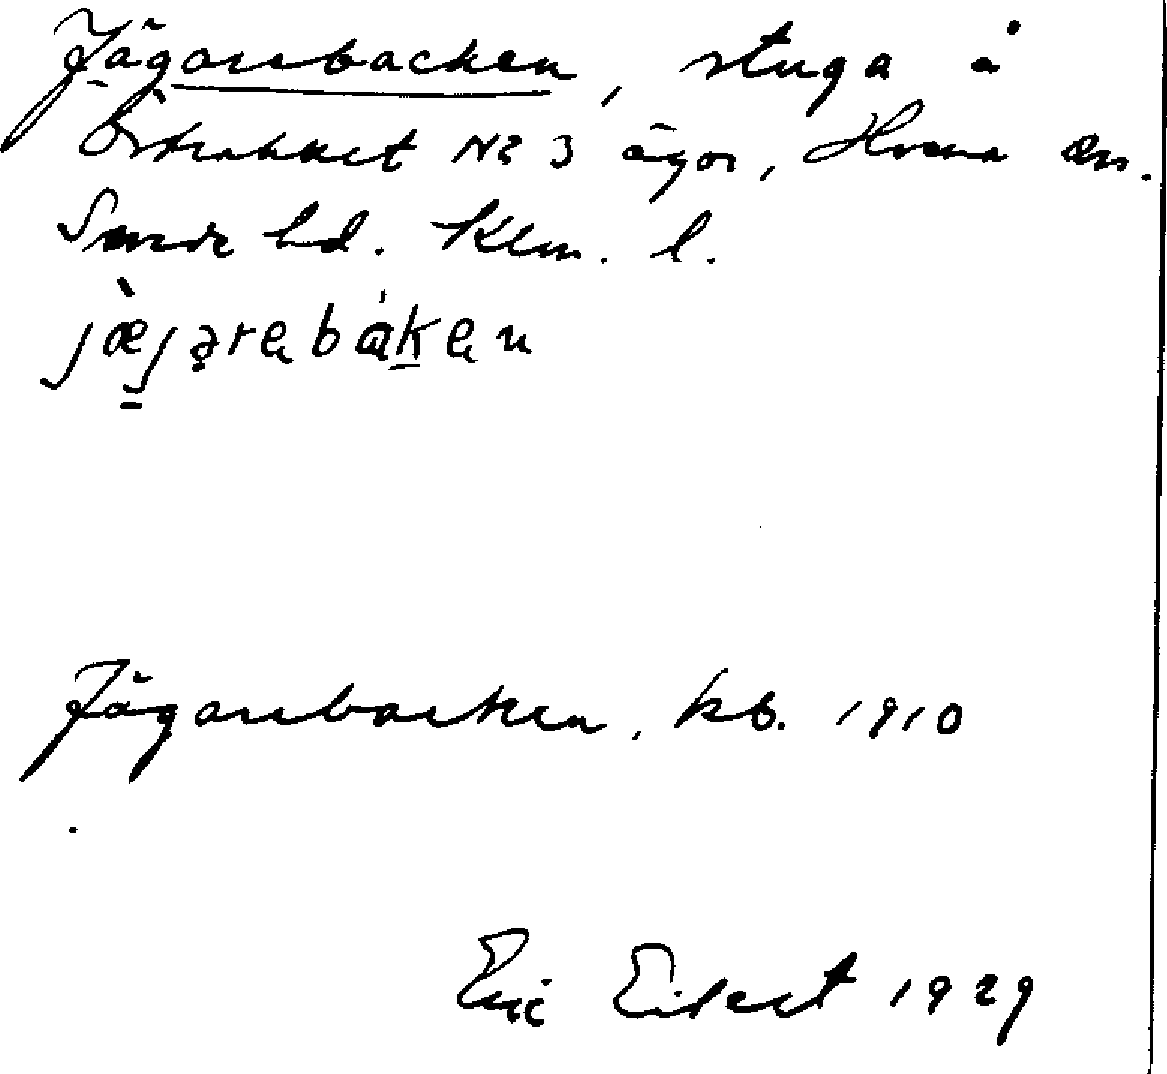 Jägarebacken, stuga å
Örtrakket No 3 ägor, Hvena sn.
Sevede hd. Klm. l.
jæjareba̍ken
Jägarebacken, kb. 1910
Eric Eilert 1929